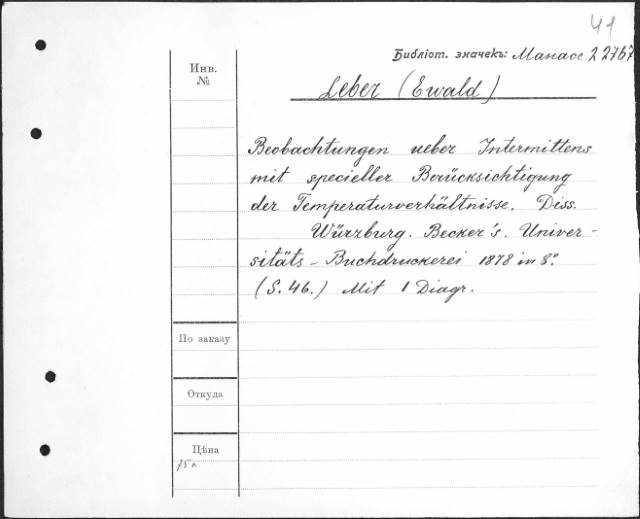 41
Библіот. значекъ: Манасс 22767
Инв.
№
Leber (Ewald)
Beobachtungen ueber Intermittens
mit specieller Berücksichtigung
der Temperaturverhältnisse. Diss.
Würzburg. Becker's. Univer-
sitäts-Buchdruckerei 1878 in 8°.
(S. 46.) Mit 1 Diagr.
По заказу
Откуда
Цѣна
75к